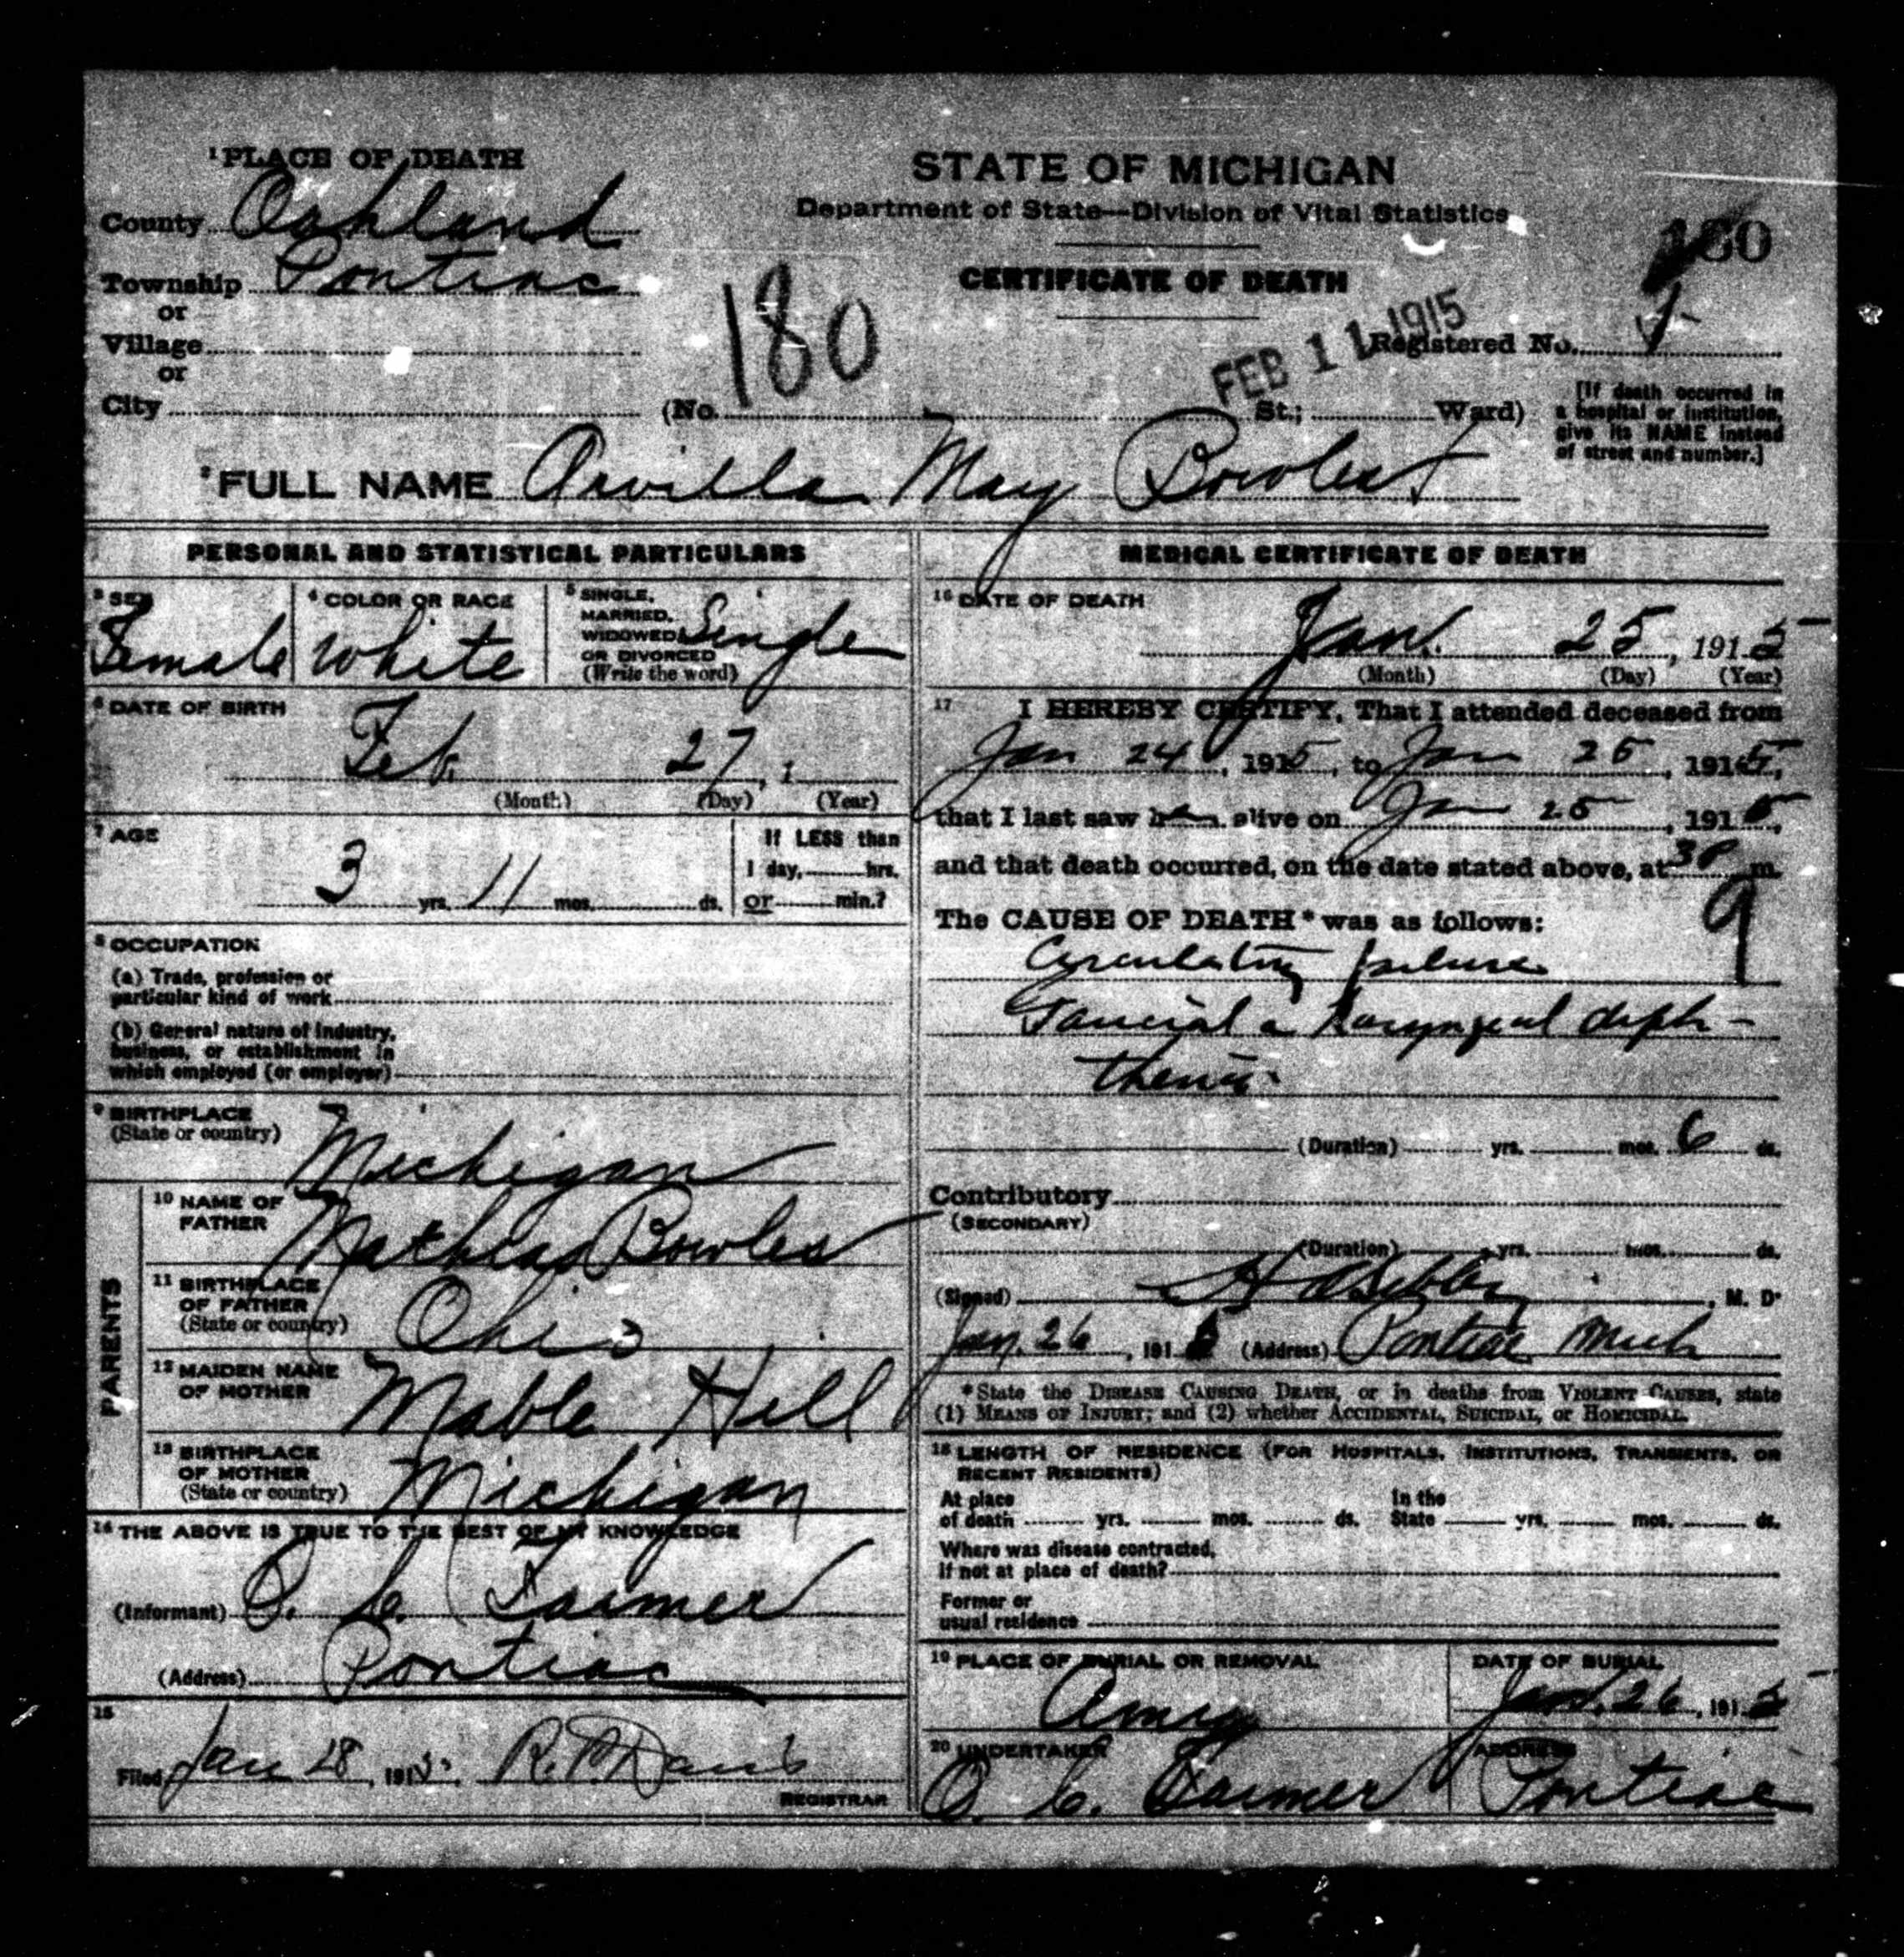 1 PLACE OF DEATH
County Oakland
Township Pontiac
or
Village
or
City
STATE OF MICHIGAN
Department of State—Division of Vital Statistics
CERTIFICATE OF DEATH
180
180
FEB 11 1915
Registered No. 1
(No. St.; Ward)
[If death occurred in
a hospital or institution,
give its NAME instead
of street and number.]
2 FULL NAME Arvilla May Bowles
PERSONAL AND STATISTICAL PARTICULARS
3 SEX
Female
4 COLOR OR RACE
White
5 SINGLE,
MARRIED,
WIDOWED
OR DIVORCED
(Write the word)
Single
6 DATE OF BIRTH
Feb 27, 1
(Month) (Day) (Year)
7 AGE
3 yrs. 11 mos. ds.
If LESS than
1 day, hrs.
or min.?
8 OCCUPATION
(a) Trade, profession or
particular kind of work
(b) General nature of industry,
business, or establishment in
which employed (or employer)
9 BIRTHPLACE
(State or country)
Michigan
PARENTS
10 NAME OF
FATHER
Mathias Bowles
11 BIRTHPLACE
OF FATHER
(State or country)
Ohio
12 MAIDEN NAME
OF MOTHER
Mable Hill
13 BIRTHPLACE
OF MOTHER
(State or country)
Michigan
14 THE ABOVE IS TRUE TO THE BEST OF MY KNOWLEDGE
(Informant) O. C. Farmer
(Address) Pontiac
15
Filed Jan 28, 1915. R. P. Davis
REGISTRAR
MEDICAL CERTIFICATE OF DEATH
16 DATE OF DEATH
Jan. 25, 1915
(Month) (Day) (Year)
17 I HEREBY CERTIFY, That I attended deceased from
Jan 24, 1915, to Jan 25, 1915,
that I last saw her alive on Jan 25, 1915,
and that death occurred, on the date stated above, at 3 P m.
The CAUSE OF DEATH* was as follows:
9
Circulatory failure
Faucial & Laryngeal diph-
theria
(Duration) yrs. mos. 6 ds.
Contributory
(SECONDARY)
(Duration) yrs. mos. ds.
(Signed) , M. D.
Jan. 26, 1915 (Address) Pontiac Mich
*State the DISEASE CAUSING DEATH, or in deaths from VIOLENT CAUSES, state
(1) MEANS OF INJURY; and (2) whether ACCIDENTAL, SUICIDAL, or HOMICIDAL.
18 LENGTH OF RESIDENCE (FOR HOSPITALS, INSTITUTIONS, TRANSIENTS, OR
RECENT RESIDENTS)
At place
of death yrs. mos. ds.
In the
State yrs. mos. ds.
Where was disease contracted,
If not at place of death?
Former or
usual residence
19 PLACE OF BURIAL OR REMOVAL
Amy
DATE OF BURIAL
Jan. 26, 1915
20 UNDERTAKER
O. C. Farmer
ADDRESS
Pontiac